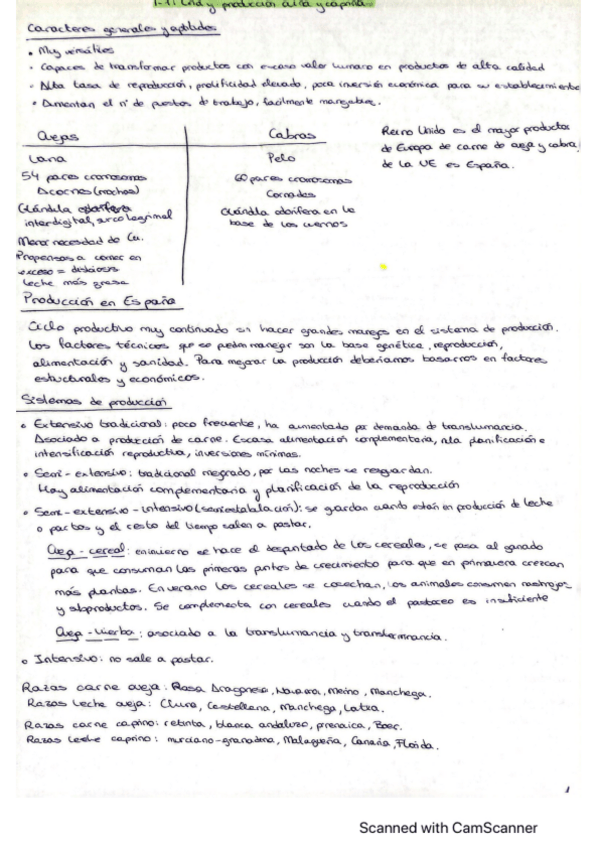 1.1. Cría y producción ovina y caprina
Caracteres generales y aptitudes
• Muy versátiles
• Capaces de transformar productos con escaso valor humano en productos de alta calidad
• Alta tasa de reproducción, prolificidad elevada, poca inversión económica para su establecimiento
• Aumentan el nº de puestos de trabajo, facilmente manejables.
Ovejas
Lana
54 pares cromosomas
Acornes (mochos)
Glándula odorífera
interdigital, surco lagrimal
Menor necesidad de Cu.
Propensos a comer en
exceso =
leche más grasa
Cabras
Pelo
60 pares cromosomas
Cornudos
Glándula odorifera en la
base de los cuernos
Reino Unido es el mayor productor
de Europa de carne de oveja y cabra,
de la UE es España.
Producción en España
Ciclo productivo muy continuado sin hacer grandes manejos en el sistema de producción.
Los factores técnicos que se pueden manejar son la base genética, reproducción,
alimentación y sanidad. Para mejorar la producción deberíamos basarnos en factores
estructurales y económicos.
Sistemas de producción
• Extensivo tradicional: poco frecuente, ha aumentado por demanda de transhumancia.
Asociado a producción de carne. Escasa alimentación complementaria, nula planificación e
intensificación reproductiva, inversiones mínimas.
• Semi-extensivo: tradicional mejorado, por las noches se resguardan.
Hay alimentación complementaria y planificación de la reproducción
• Semi-extensivo-intensivo (semiestabulación): se guardan cuando están en producción de leche
o partos y el resto del tiempo salen a pastar.
Oveja-cereal: en invierno se hace el despuntado de los cereales, se pasa al ganado
para que consuman las primeras puntas de crecimiento para que en primavera crezcan
más plantas. En verano los cereales se cosechan, los animales consumen rastrojos
y subproductos. Se complementa con cereales cuando el pastoreo es insuficiente
Oveja-hierba: asociado a la transhumancia y transterminancia.
• Intensivo: no sale a pastar.
Razas carne oveja: Rasa Aragonesa, Navarra, Merino, Manchega.
Razas leche oveja: Churra, Castellana, Manchega, Latxa.
Razas carne caprino: retinta, blanca andaluza, pirenaica, Boer.
Razas leche caprino: murciano-granadina, Malagueña, Canaria, Florida.
1
Scanned with CamScanner